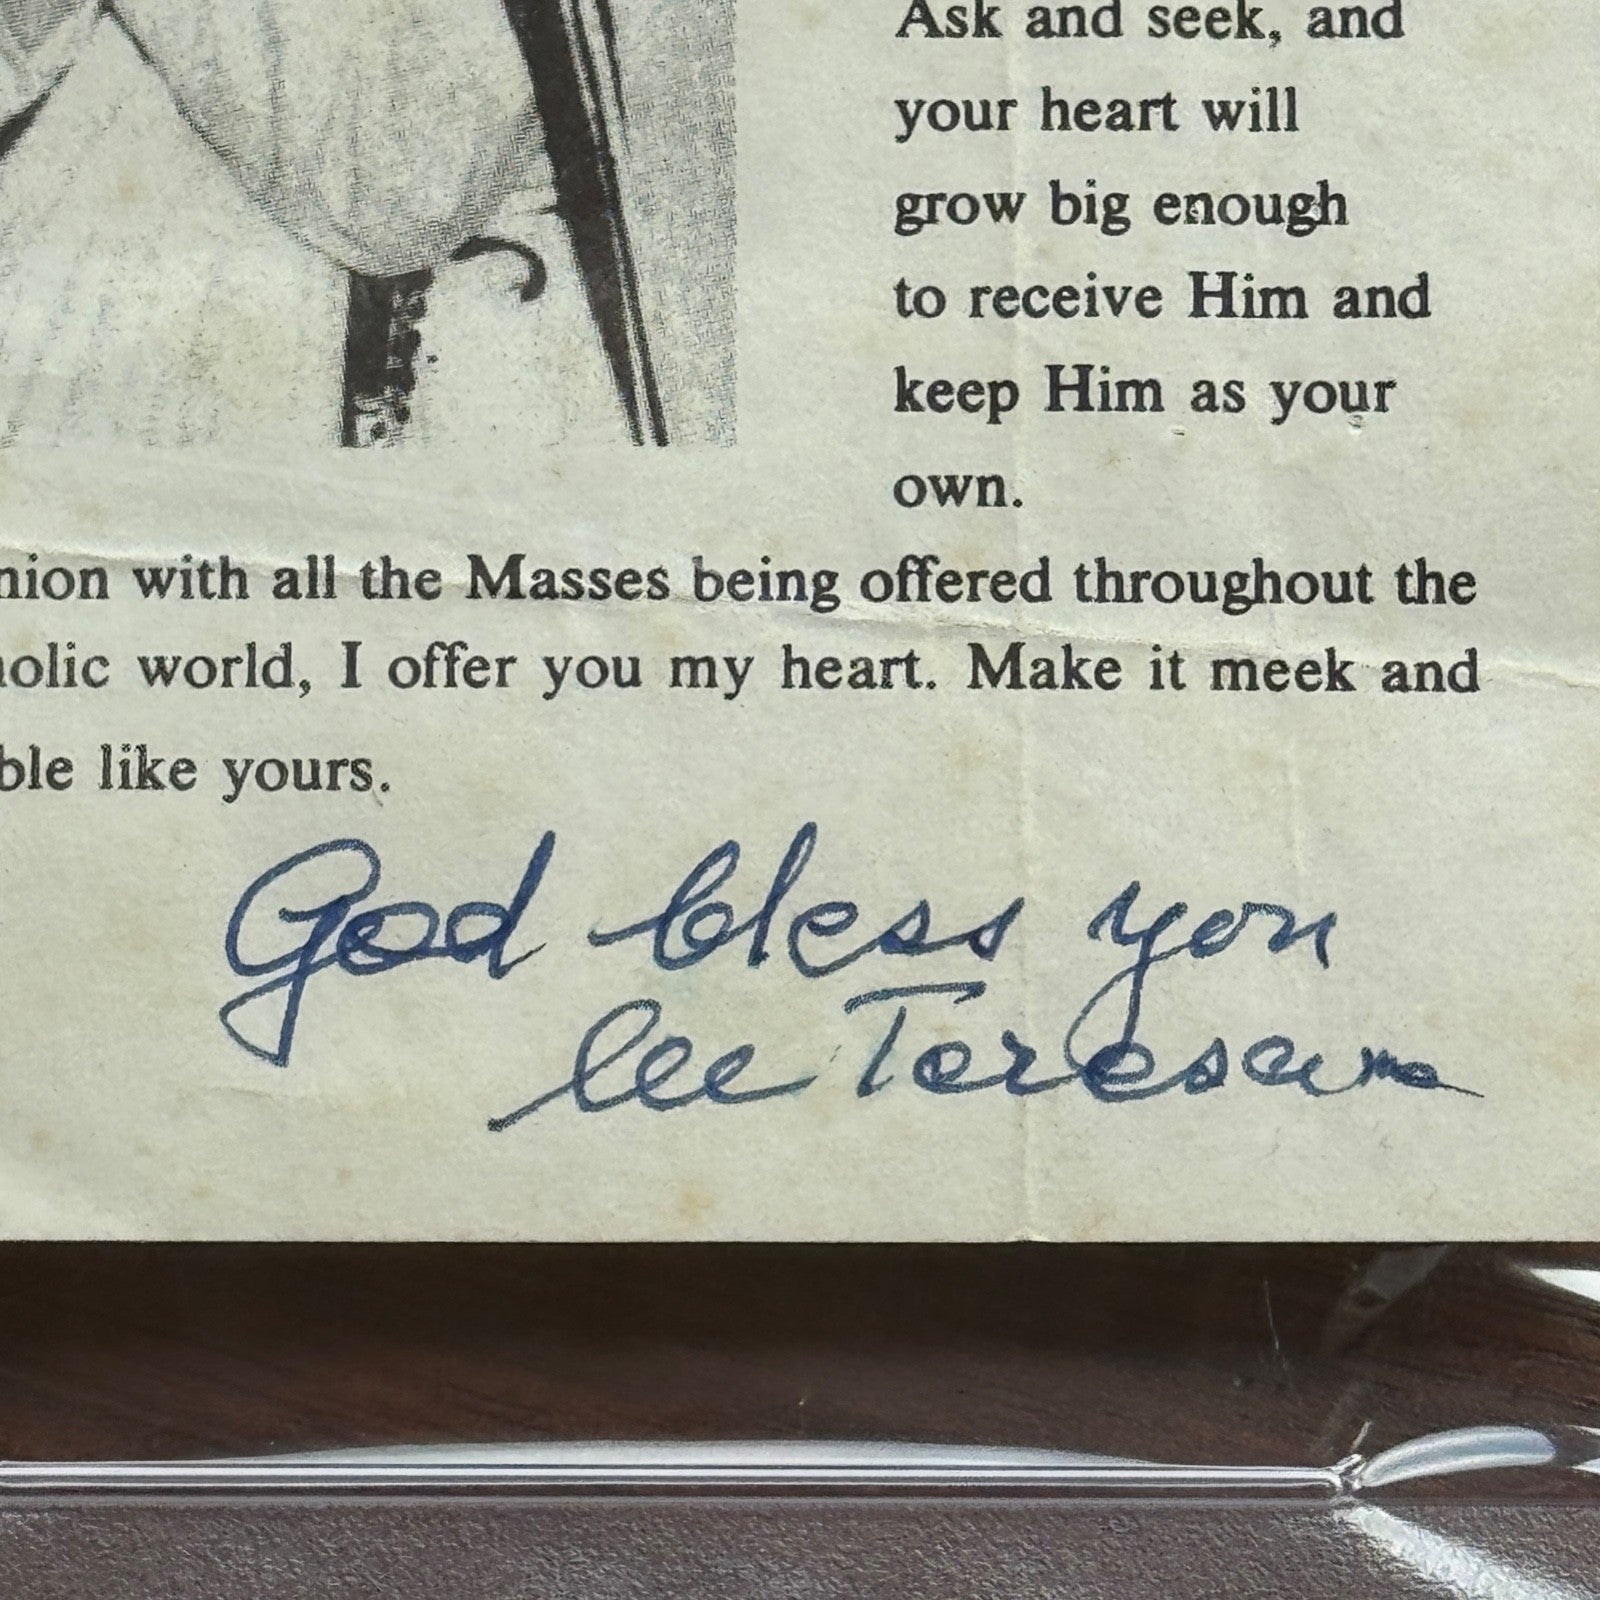 Ask and seek, and
your heart will
grow big enough
to receive Him and
keep Him as your
own.
nion with all the Masses being offered throughout the
olic world, I offer you my heart. Make it meek and
ble like yours.
God bless you
lee Teresa mc